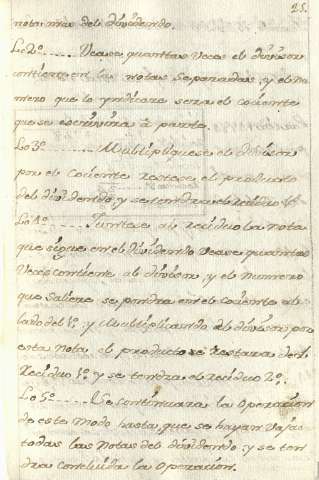 25.
notrimas del dividendo.
Lo 2º ...... Vease quantas Veces el divisor
contiene en las notas Separadas, y el Nu
mero que lo yndicare sera el cociente
que se escrivira à parte.
Lo 3º ...... Multipliquese el divisor
por el cociente restese el producto
del dividendo, y se tendra el residuo 1º.
Lo 4º ...... Juntese al residuo la nota
que sigue en el dividendo Vease quantas
Veces contiene al divisor, y el Numero
que Saliere se pondra en el cociente al
lado del 1º. y Multiplicando al divisor por
esta nota el producto se Restara del
Residuo 1º. y se tendra el residuo 2º.
Lo 5º ...... Se continuara la Operacion
de este modo hasta que se hayan Vajado
todas las notas del dividendo, y se ten
dra concluida la Operacion.